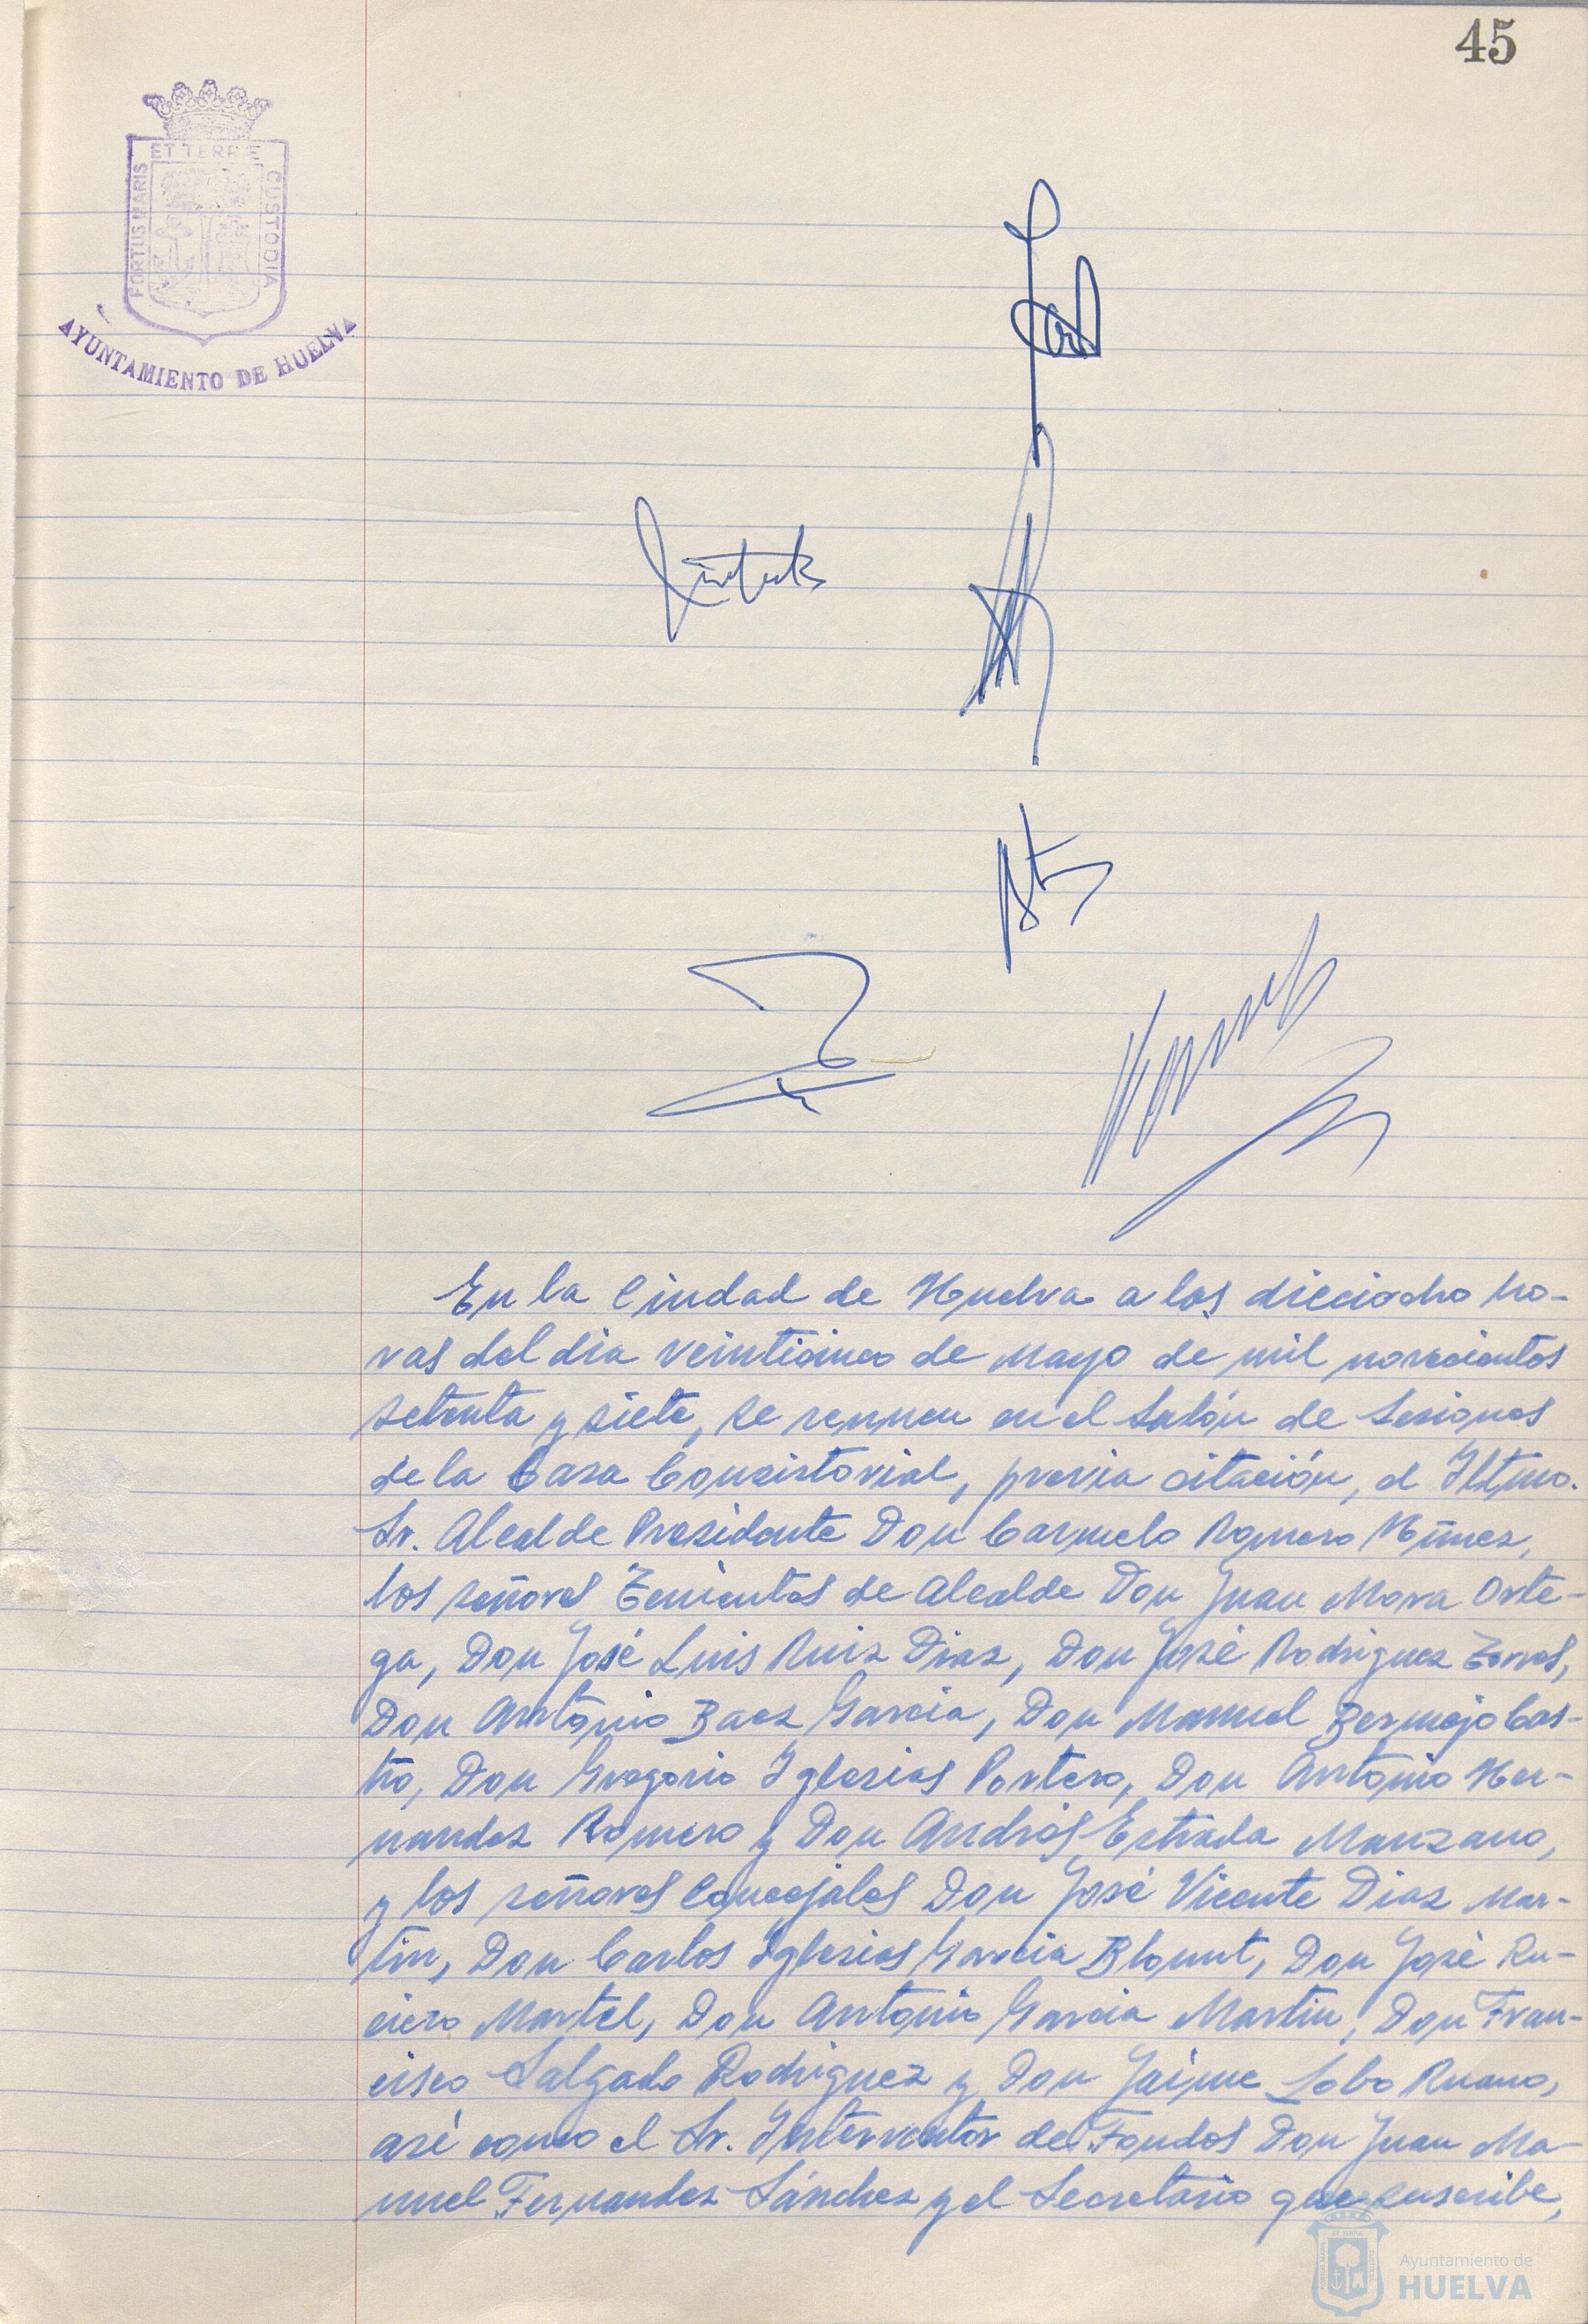 45
ET TERRE
FORTUS MARIS
CUSTODIA
AYUNTAMIENTO DE HUELVA
En la Ciudad de Huelva a los dieciocho ho-
ras del dia veinticinco de Mayo de mil novecientos
setenta y siete, se reunen en el Salón de Sesiones
de la Casa Consistorial, previa citación, el Iltmo.
Sr. Alcalde Presidente Don Carmelo Romero Núñez,
los señores Tenientes de Alcalde Don Juan Mora Orte-
ga, Don José Luis Ruiz Diaz, Don José Rodriguez Torres,
Don Antonio Baez Garcia, Don Manuel Bermejo Cas-
tro, Don Gregorio Iglesias Portero, Don Antonio Her-
nandez Romero y Don Andrés Estrada Manzano,
y los señores Concejales Don José Vicente Diaz Mar-
tin, Don Carlos Iglesias Garcia Blount, Don José Ru-
ciero Martel, Don Antonio Garcia Martin, Don Fran-
cisco Salgado Rodriguez y Don Jaime Lobo Ruano,
asi como el Sr. Interventor de Fondos Don Juan Ma-
nuel Fernandez Sánchez y el Secretario que suscribe,
Ayuntamiento de
HUELVA